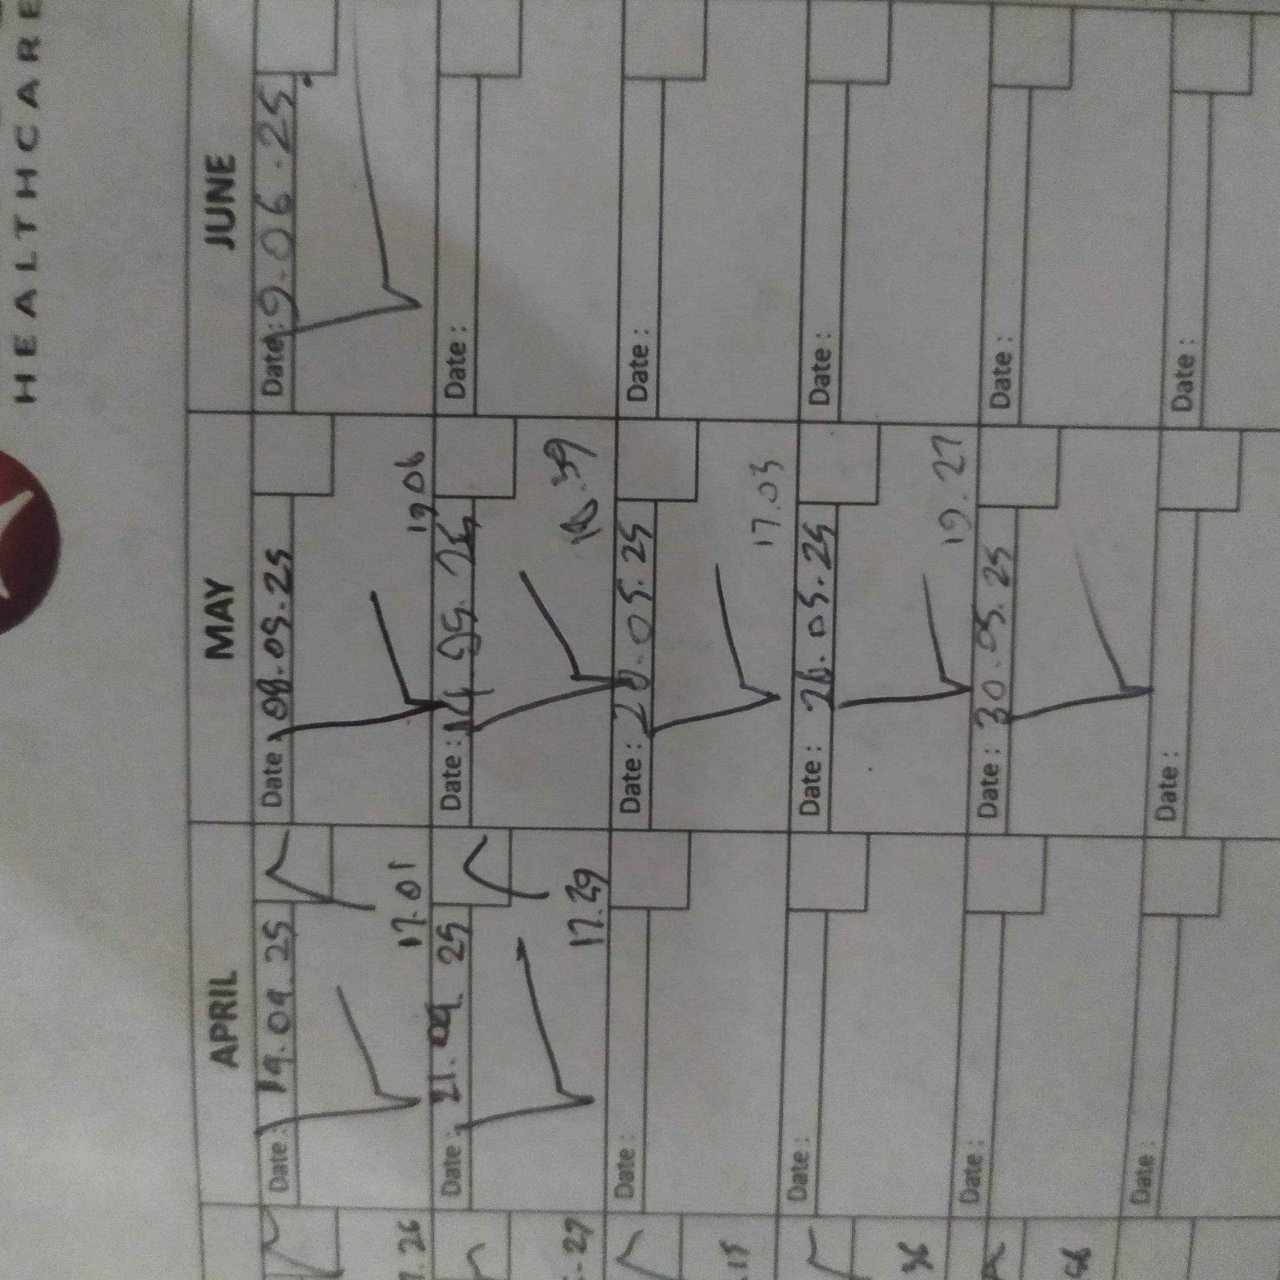 HEALTHCARE
APRIL MAY JUNE
Date: 19.04.25 Date: 08.05.25 Date: 9.06.25
17.01 19.06
Date: 21.04.25 Date: 14.05.25 Date:
17.29
Date: Date: 20.05.25 Date:
17.03
Date: Date: 26.05.25 Date:
19.27
Date: Date: 30.05.25 Date:
Date: Date: Date: